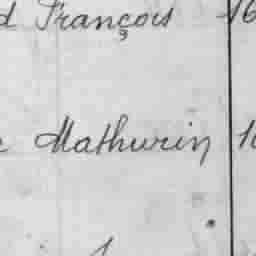 d François 16
e Mathurin 1